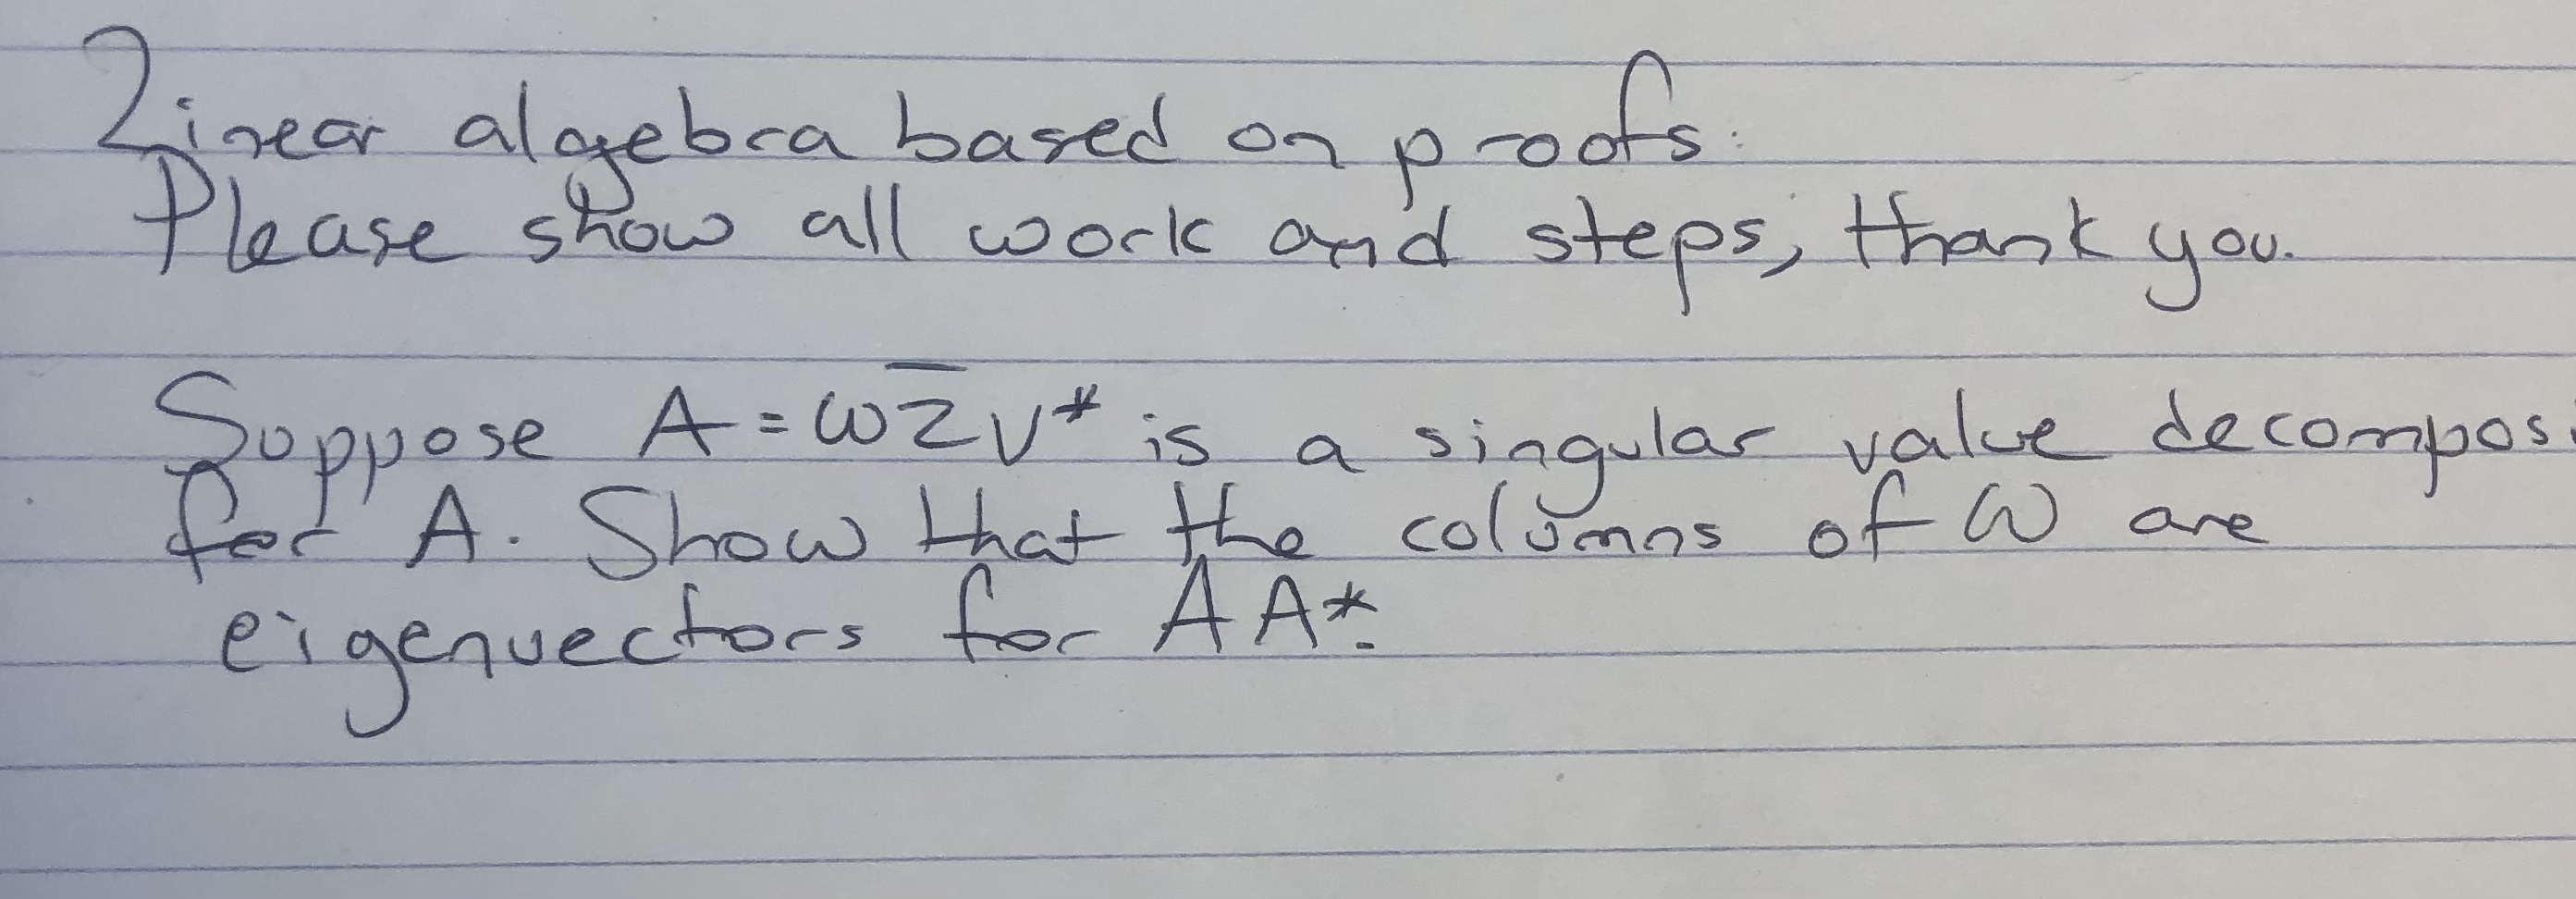 Linear algebra based on proofs:
Please show all work and steps, thank you.
Suppose A = WΣV* is a singular value decompos
for A. Show that the columns of W are
eigenvectors for AA*.